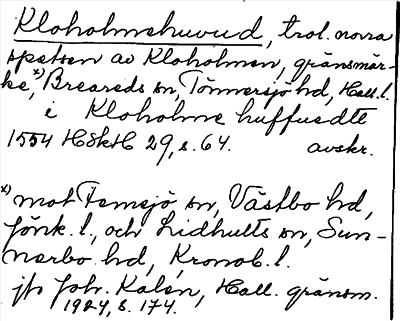 Kloholmshuvud, trol. norra
spetsen av Kloholmen, gränsmär-
ke,x) Breareds sn, Tönnersjö hd, Hall. l.
i Kloholms huffuedte
1554 HSkH 29, s. 64. avskr.
x) mot Femsjö sn, Västbo hd,
Jönk. l., och Lidhults sn, Sun-
nerbo hd, Kronob. l.
jfr Joh. Kalén, Hall. gränsm.
1924, s. 174.